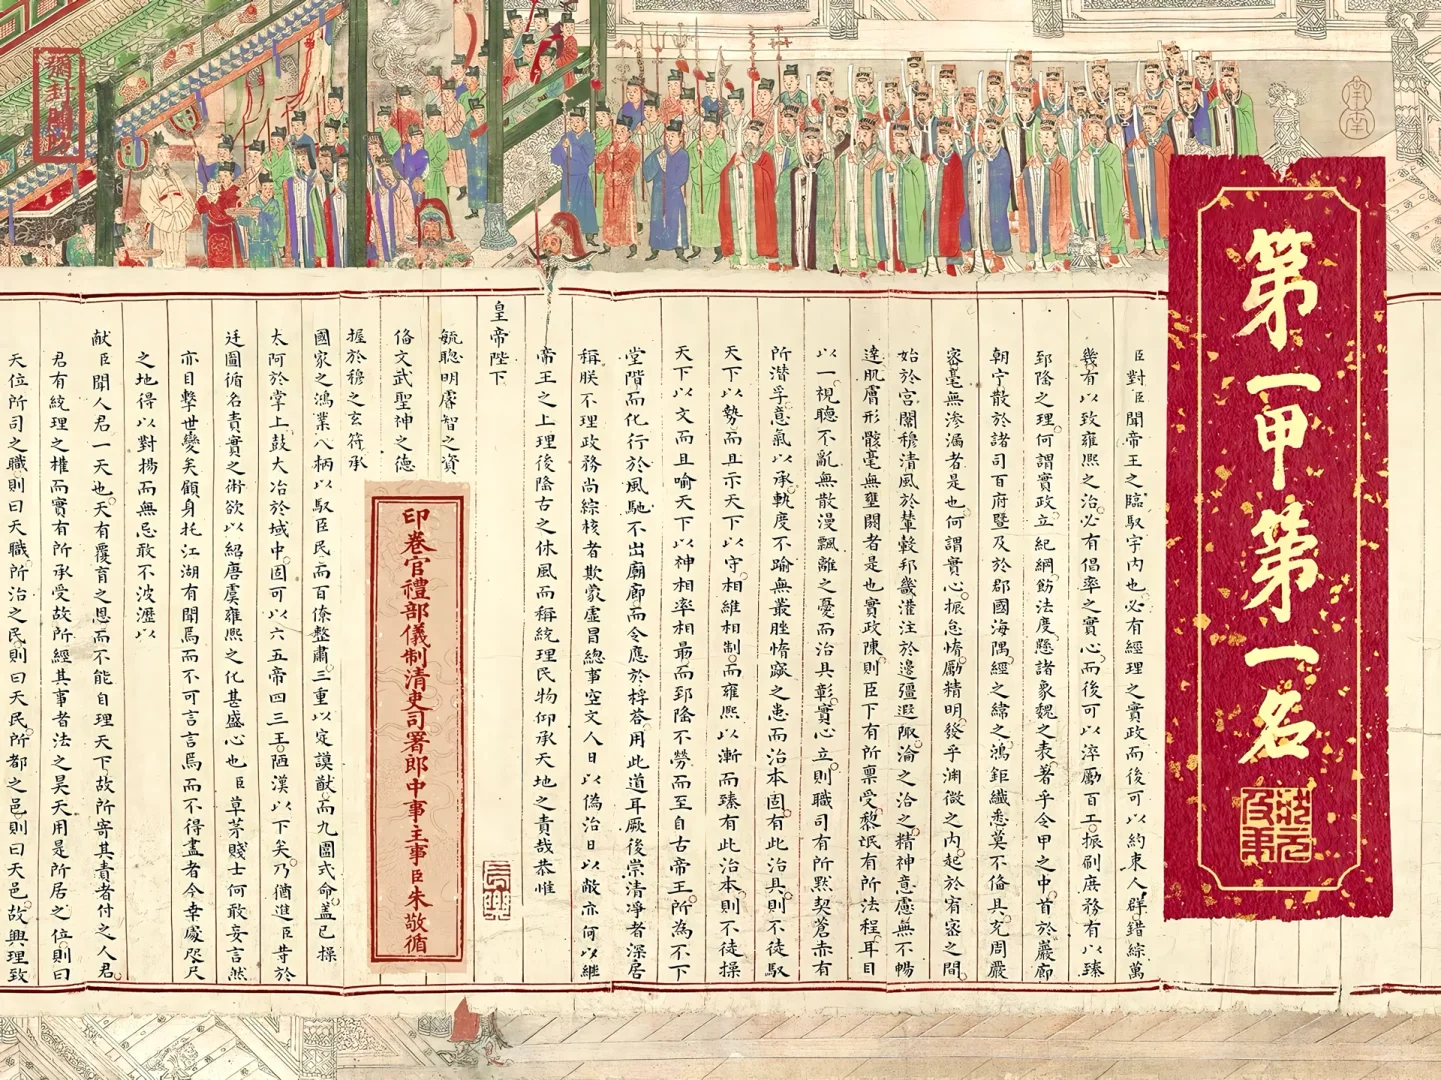 第一甲第一名
狀元及第
臣對臣聞帝王之臨馭宇內也必有經理之實政而後可以約束人群錯綜萬
幾有以致雍熙之治必有倡率之實心而後可以淬勵百工振刷庶務有以臻
郅隆之理何謂實政立紀綱飭法度懸諸象魏之表著乎令甲之中首於巖廊
朝宁散於諸司百府暨及於郡國海隅經之緯之鴻鉅纖悉莫不備具充周嚴
密毫無滲漏者是也何謂實心振怠惰勵精明發乎淵微之內起於宥密之間
始於宮闈穆清風於輦轂邦畿灌注於邊疆遐陬淪之洽之精神意慮無不暢
達肌膚形骸毫無壅閼者是也實政陳則臣下有所稟受黎氓有所法程耳目
以一視聽不亂無散漫飄離之憂而治具彰實心立則職司有所默契蒼赤有
所潛孚意氣以承軌度不踰無叢脞惰蹶之患而治本固有此治具則不徒馭
天下以勢而且示天下以守相維相制而雍熙以漸而臻有此治本則不徒操
天下以文而且喻天下以神相率相最而郅隆不勞而至自古帝王所為不下
堂階而化行於風馳不出廟廊而令應於桴荅用此道耳厥後崇清凈者深居
稱朕不理政務尚綜核者欺蒙虛冒總事空文人日以偽治日以敝亦何以繼
帝王之上理後隆古之休風而稱統理民物仰承天地之責哉恭惟
皇帝陛下
毓聰明睿智之資
備文武聖神之德
握於穆之玄符承
國家之鴻業八柄以馭臣民而百僚整肅三重以定謨猷而九圍式命蓋已操
太阿於掌上鼓大冶於域中固可以六五帝四三王陋漢以下矣乃猶進臣等於
廷圖循名責實之術欲以紹唐虞雍熙之化甚盛心也臣草茅賤士何敢妄言然
亦目擊世變矣顧身托江湖有聞焉而不可言言焉而不得盡者今幸處咫尺
之地得以對揚而無忌敢不披瀝以
献臣聞人君一天也天有覆育之恩而不能自理天下故所寄其責者付之人君
君有統理之權而實有所承受故所經其事者法之昊天用是所居之位則曰
天位所司之職則曰天職所治之民則曰天民所都之邑則曰天邑故興理致
印卷官禮部儀制清吏司署郎中事主事臣朱敬循